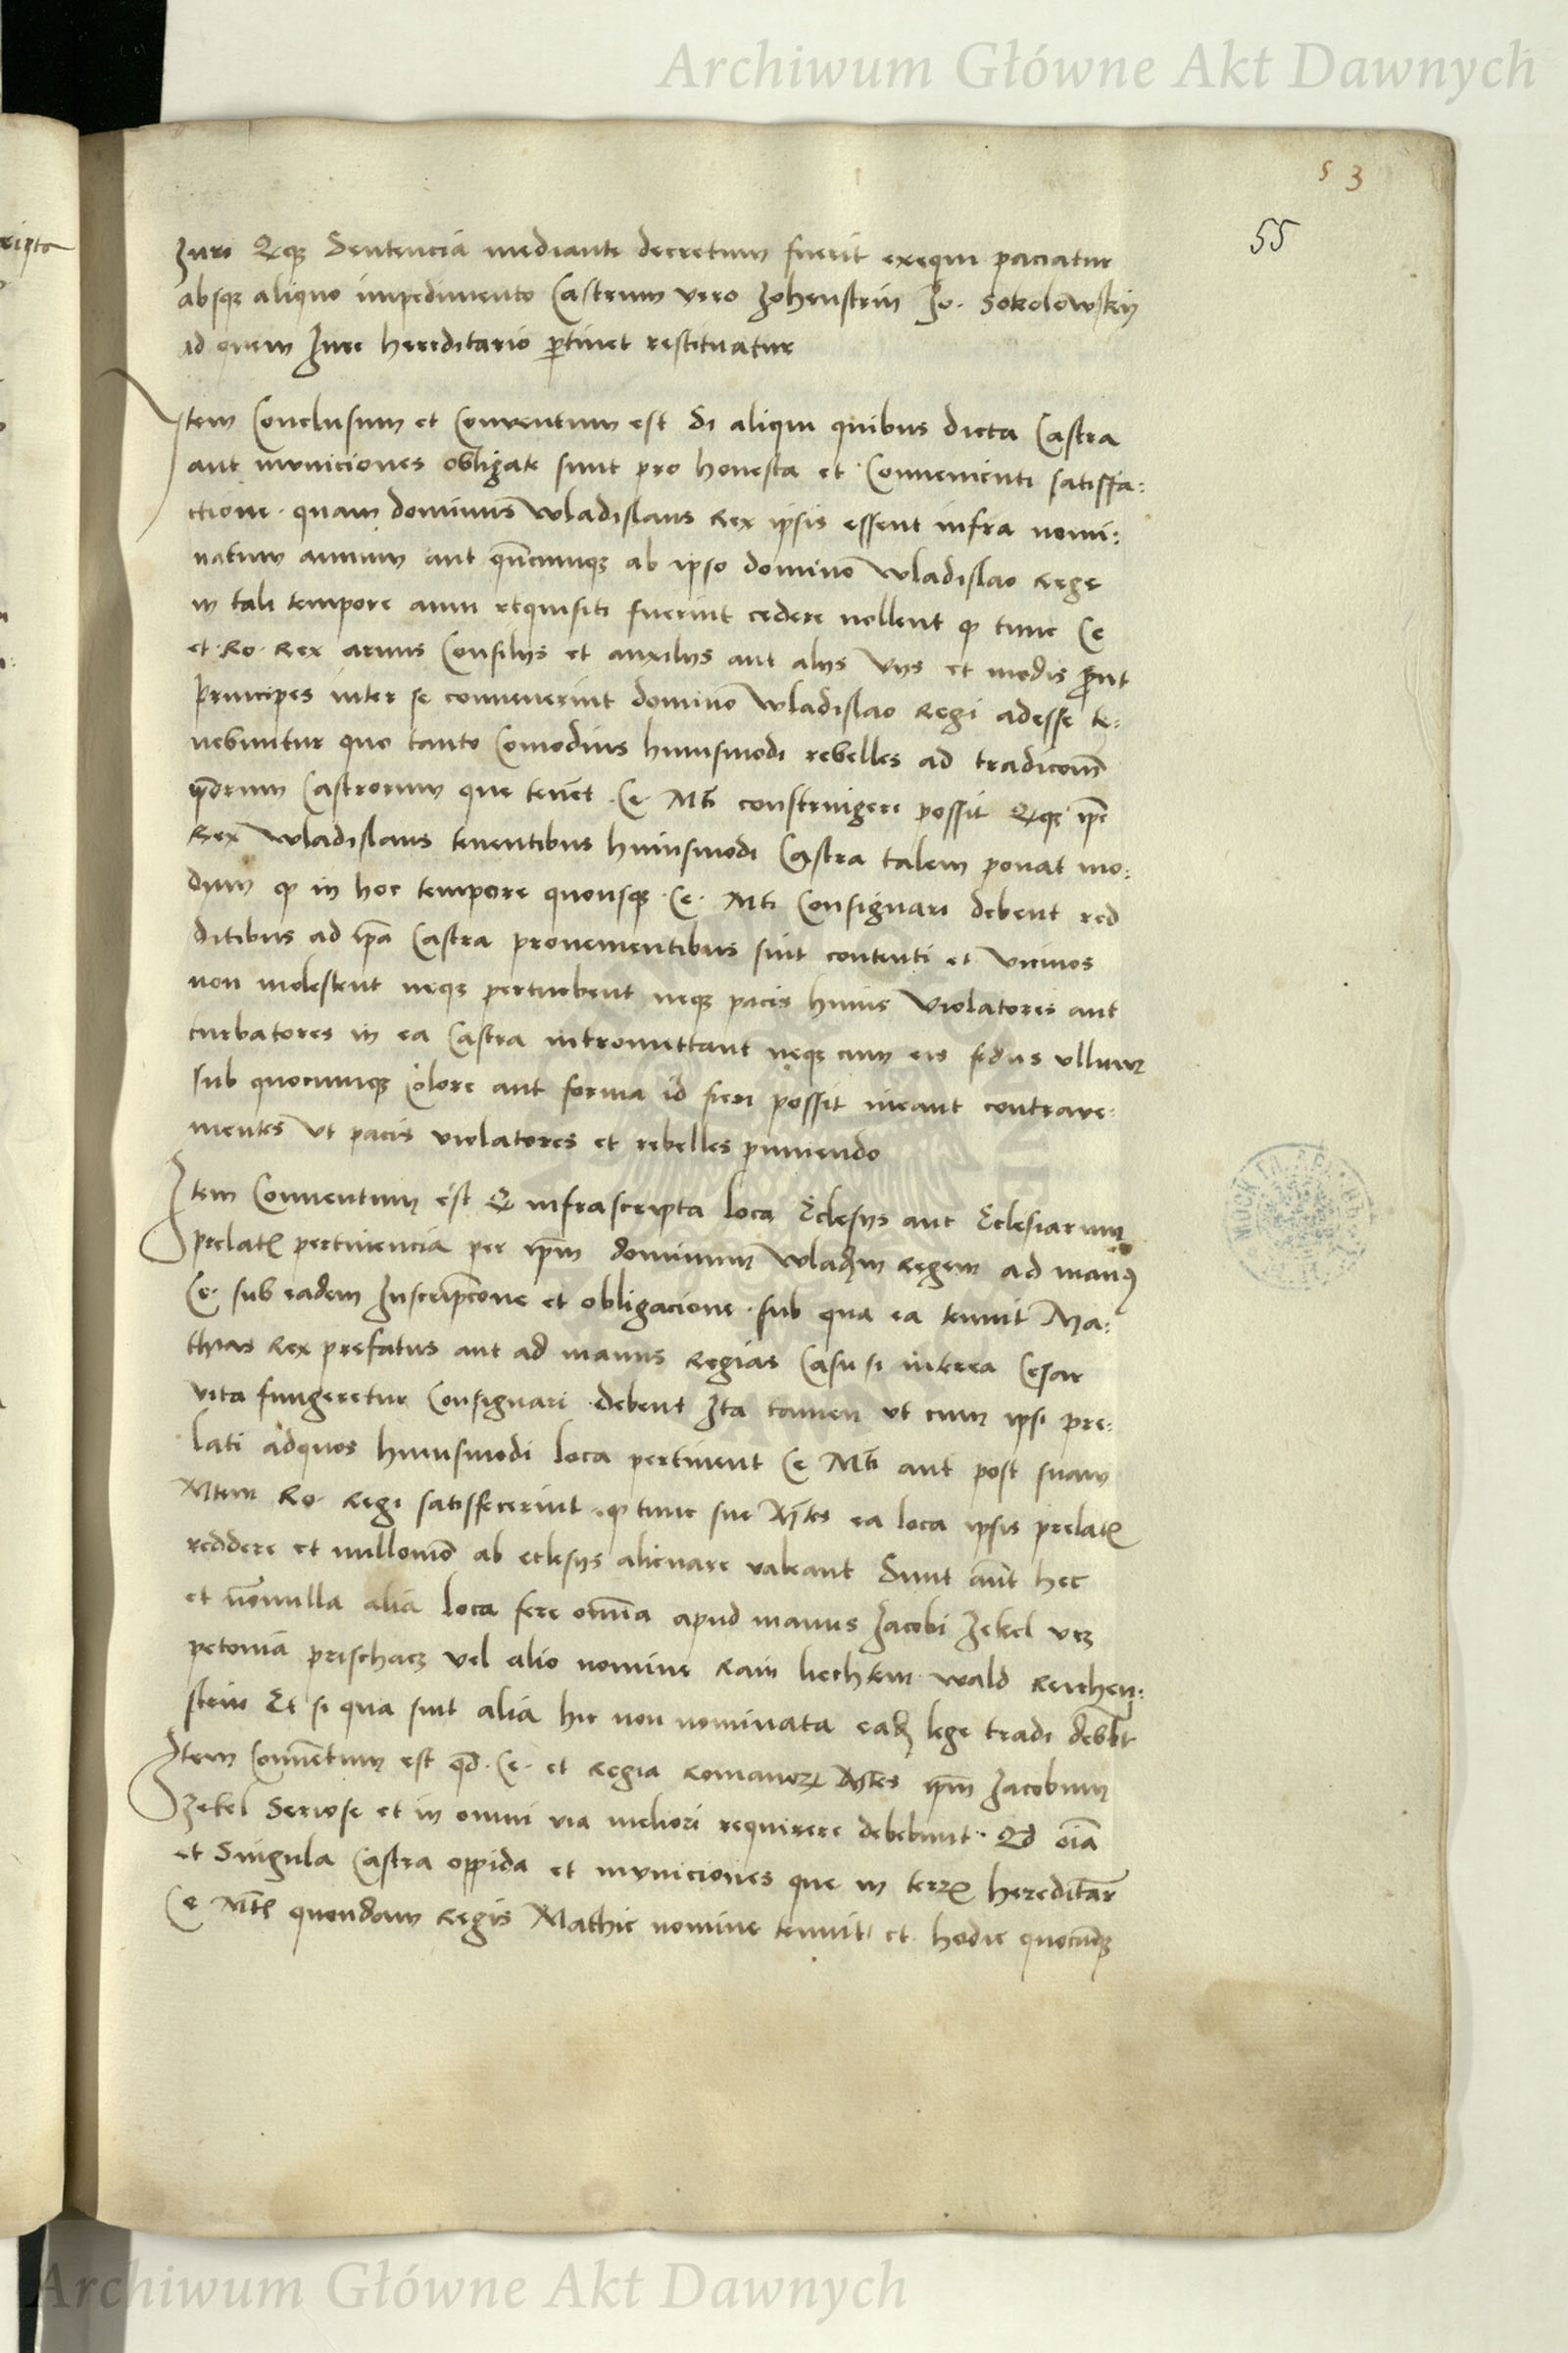 Archiwum Główne Akt Dawnych
53
55
Jure Qꝫ Sentencia mediante decretum fuerit exequi paciatur
absqꝫ aliquo impedimento Castrum vero Johenstein Jo. Sokolowskij
ad quem Jure hereditario ꝑtinet restituatur
Item Conclusum et Conventum est Si aliqui quibus dicta Castra
aut municiones obligate sunt pro honesta et Convenienti satisffa:
ctione quam dominus Wladislaus Rex ipsis essent infra nomi:
natum annum aut qn̄cunqꝫ ab ipso domino Wladislao Rege
in tali tempore anni requisiti fuerint cedere nollent ꝙ tunc Ce
et Ro. Rex armis Consilijs et auxilijs aut alijs vijs et modis ꝓut
principes inter se convenerint domino Wladislao Regi adesse te:
nebuntur quo tanto Comodius huiusmodi rebelles ad tradicōm̄
Castrorum que tenēt Ce. Mti constringere possit Qꝫ ip̄e
Rex Wladislaus tenentibus huiusmodi Castra talem ponat mo:
dum ꝙ in hoc tempore quousqꝫ Ce. Mti Consignari debent red
ditibus ad ip̄a Castra provenientibus sint contenti et vicinos
non molestent neqꝫ perturbent neqꝫ pacis huius violatores aut
turbatores in ea Castra intromittant neqꝫ cum eis fedus ullum
sub quocumqꝫ Colore aut forma id fieri possit ineant contrave:
nientes ut pacis violatores et rebelles puniendo
Item Conventum est Q infrascripta loca Eclesijs aut Eclesiarum
prelatꝭ pertinencia per ip̄m dominum Wladm Regem ad manꝰ
Ce. sub eadem Inscripcōne et obligacione sub qua ea tenuit Ma:
thias Rex prefatus aut ad manus Regias Casu si interea Cesar
vita fungeretur Consignari debent Ita tamen ut cum ipsi pre:
lati adquos huiusmodi loca pertinent Ce Mti aut post suam
Mtem Ro. Regi satisffecerint ꝙ tunc sue Mtes ea loca ipsis prelatꝭ
reddere et nullomō ab eclesijs alienare valeant Sunt aūt hec
et nōnulla alia loca fere omīa apud manus Jacobi Zekel vꝫ
petonia prischacz vel alio nomine Rain liechtem wald Reichen:
stein Et si qua sint alia hic non nominata eadꝫ lege tradi debēt
Item Convētum est qd. Ce. et Regia Romanorꝝ Mtes ip̄m Jacobum
Zekel Seriose et in omni via meliori requirere debebunt Qd oīa
et Singula Castra oppida et municiones que in terrꝭ hereditār
Ce Mtꝭ quondam Regis Mathie nomine tenuit et hodie quocūqꝫ
Archiwum Główne Akt Dawnych